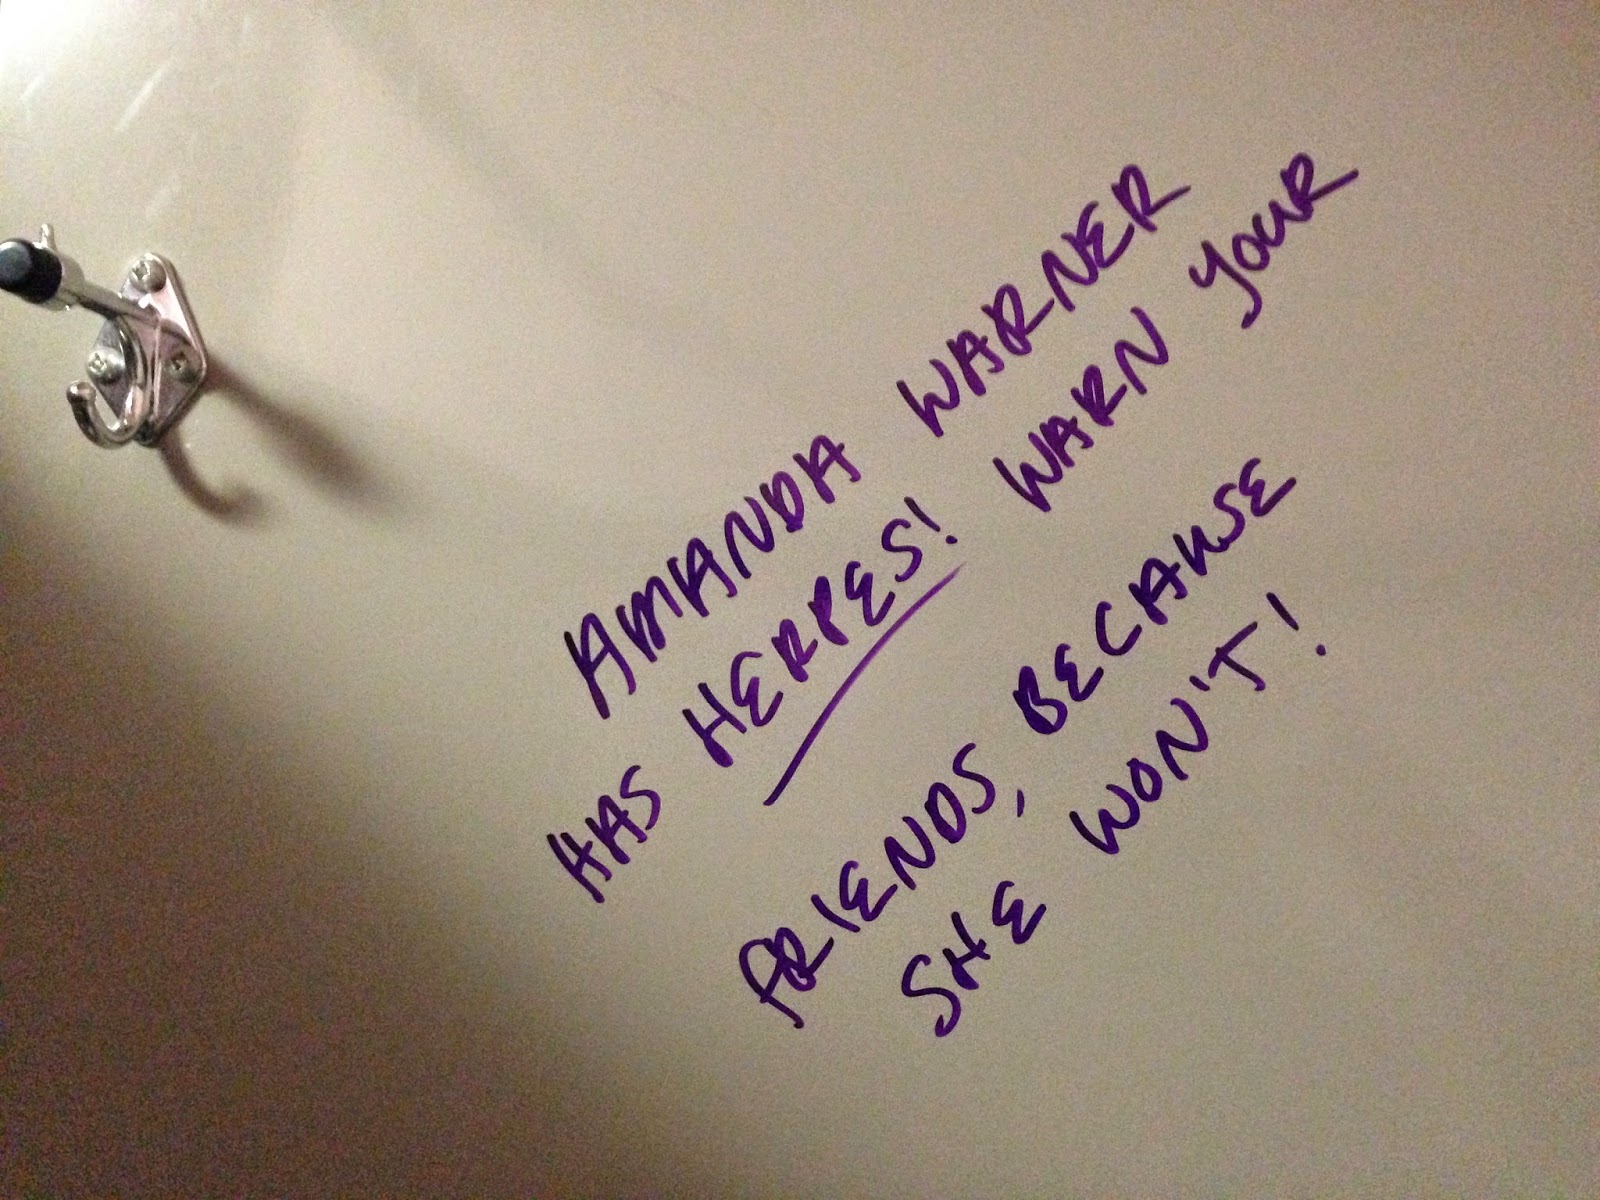 AMANDA WARNER
HAS HERPES! WARN YOUR
FRIENDS, BECAUSE
SHE WON'T!